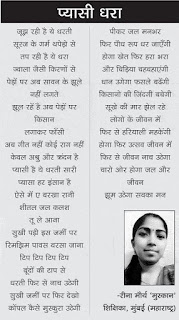 प्यासी धरा
जूझ रही है ये धरती
सूरज के गर्म थपेड़ो से
तप रही है ये धरा
ज्वाला जैसी किरणों से
पेड़ों पर अब सावन के झूले
नहीं लगते
झूल रहें है अब पेड़ों पर
किसान
लगाकर फाँसी
अब गीत नहीं कोई राग नहीं
केवल अश्रु और क्रंदन है
प्यासी है ये धरती सारी
प्यासा हर इंसान है
ऐसे में ए बरखा रानी
शीतल जल कलश
तू ले आना
सुखी पड़ी इस जमीं पर
रिमझिम पावस बरसा जाना
टिप टिप टिप टिप
बूंदों की टाप से
धरती फिर से नाच उठेगी
सुखी जमीं पर फिर देखो
कोंपल कैसे मुस्कुरा उठेगी
पीकर जल मनभर
फिर पीय रूप धर जाएँगी
होगा खेत फिर हरा भरा
और चिड़िया चहचहाएंगी
धान उगेगा फसलें बढ़ेंगी
किसानों की जिंदगी बचेगी
सूखे की मार झेल रहे
लोगो के जीवन में
फिर से हरियाली महकेगी
होगा फिर उत्सव जीवन में
फिर से जीवन नाच उठेगा
चारों ओर होगा जल और
जीवन
झूम उठेगा सबका मन
-रीना मौर्य 'मुस्कान'
शिक्षिका, मुंबई (महाराष्ट्र)